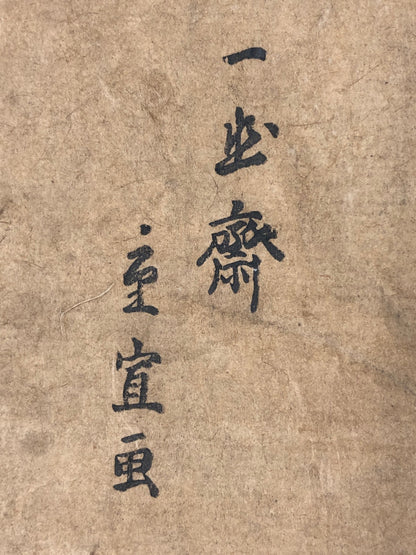 一幽齋
重宣画